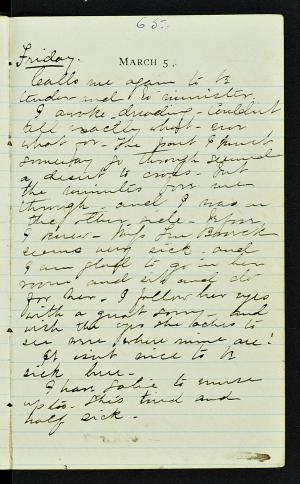 65.
Friday.
MARCH 5.
Calls me again to be
tender and to minister.
I awoke dreading - Couldn't
tell exactly what - nor
what for - The part I must
someway go through seemed
a desert to cross. But
the minutes bore me
through - and I was on
the other side - before
I knew - Miss
seems very sick and
I am glad to go in her
room and sit and do
for her. I follow her eyes
with a great sorry - and
wish the eyes she aches to
see were where mine are!
It isn't nice to be
sick here.
I have to nurse
up too. She's tired and
half sick.